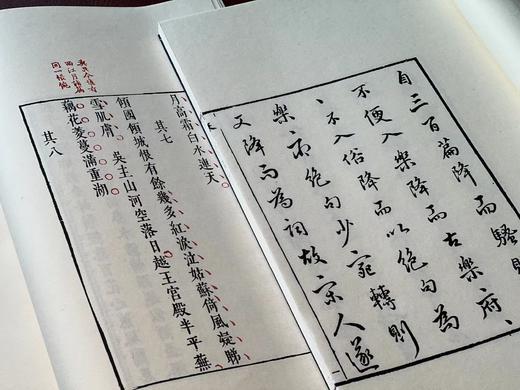 自三百篇降而騷
不便入樂降而古樂府、
、不入俗降而以絕句為
樂府絕句少宛轉則
又降而為詞故宋人遂
月高霜白水連天
其七
傾國傾城恨有餘幾多紅淚泣姑蘇倚風凝睇
雪肌膚 吳主山河空落日越王宮殿半平蕪
藕花菱蔓滿重湖
其八